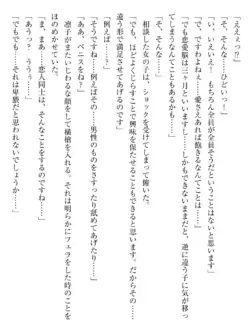 「ええぇっ⁉」
「そ、そんな……ひどいっ……！」
「も、もちろん全員が全員そうだということはないと思います！」
「で、ですわよね……愛さえあれば飽きるなんてことは……」
「でも恋愛脳は三ヶ月といいますし……しかもそのままだと、逆に違う子に気が移っ
「そ、そんなぁ……」
相談した女の子は、ショックを受けてしまって俯いた。
「でも、ほどよくじらすことで興味を保たせることもできると思います。だからその……
違う形で満足させてあげるのです」
「例えば……？」
「そうですね……例えばその……男性のものをさすったり舐めてあげたり……」
「あら？ ペニスをね？」
凛子がまたいじわるな顔をして横槍を入れる。それは明らかにフェラをした時のことを
ほのめかせていた。
「あうっ？ うう……」
「まぁ……恋人同士は、そんなことをするのですね……」
「でもでも……それは卑猥だと思われないでしょうか……」